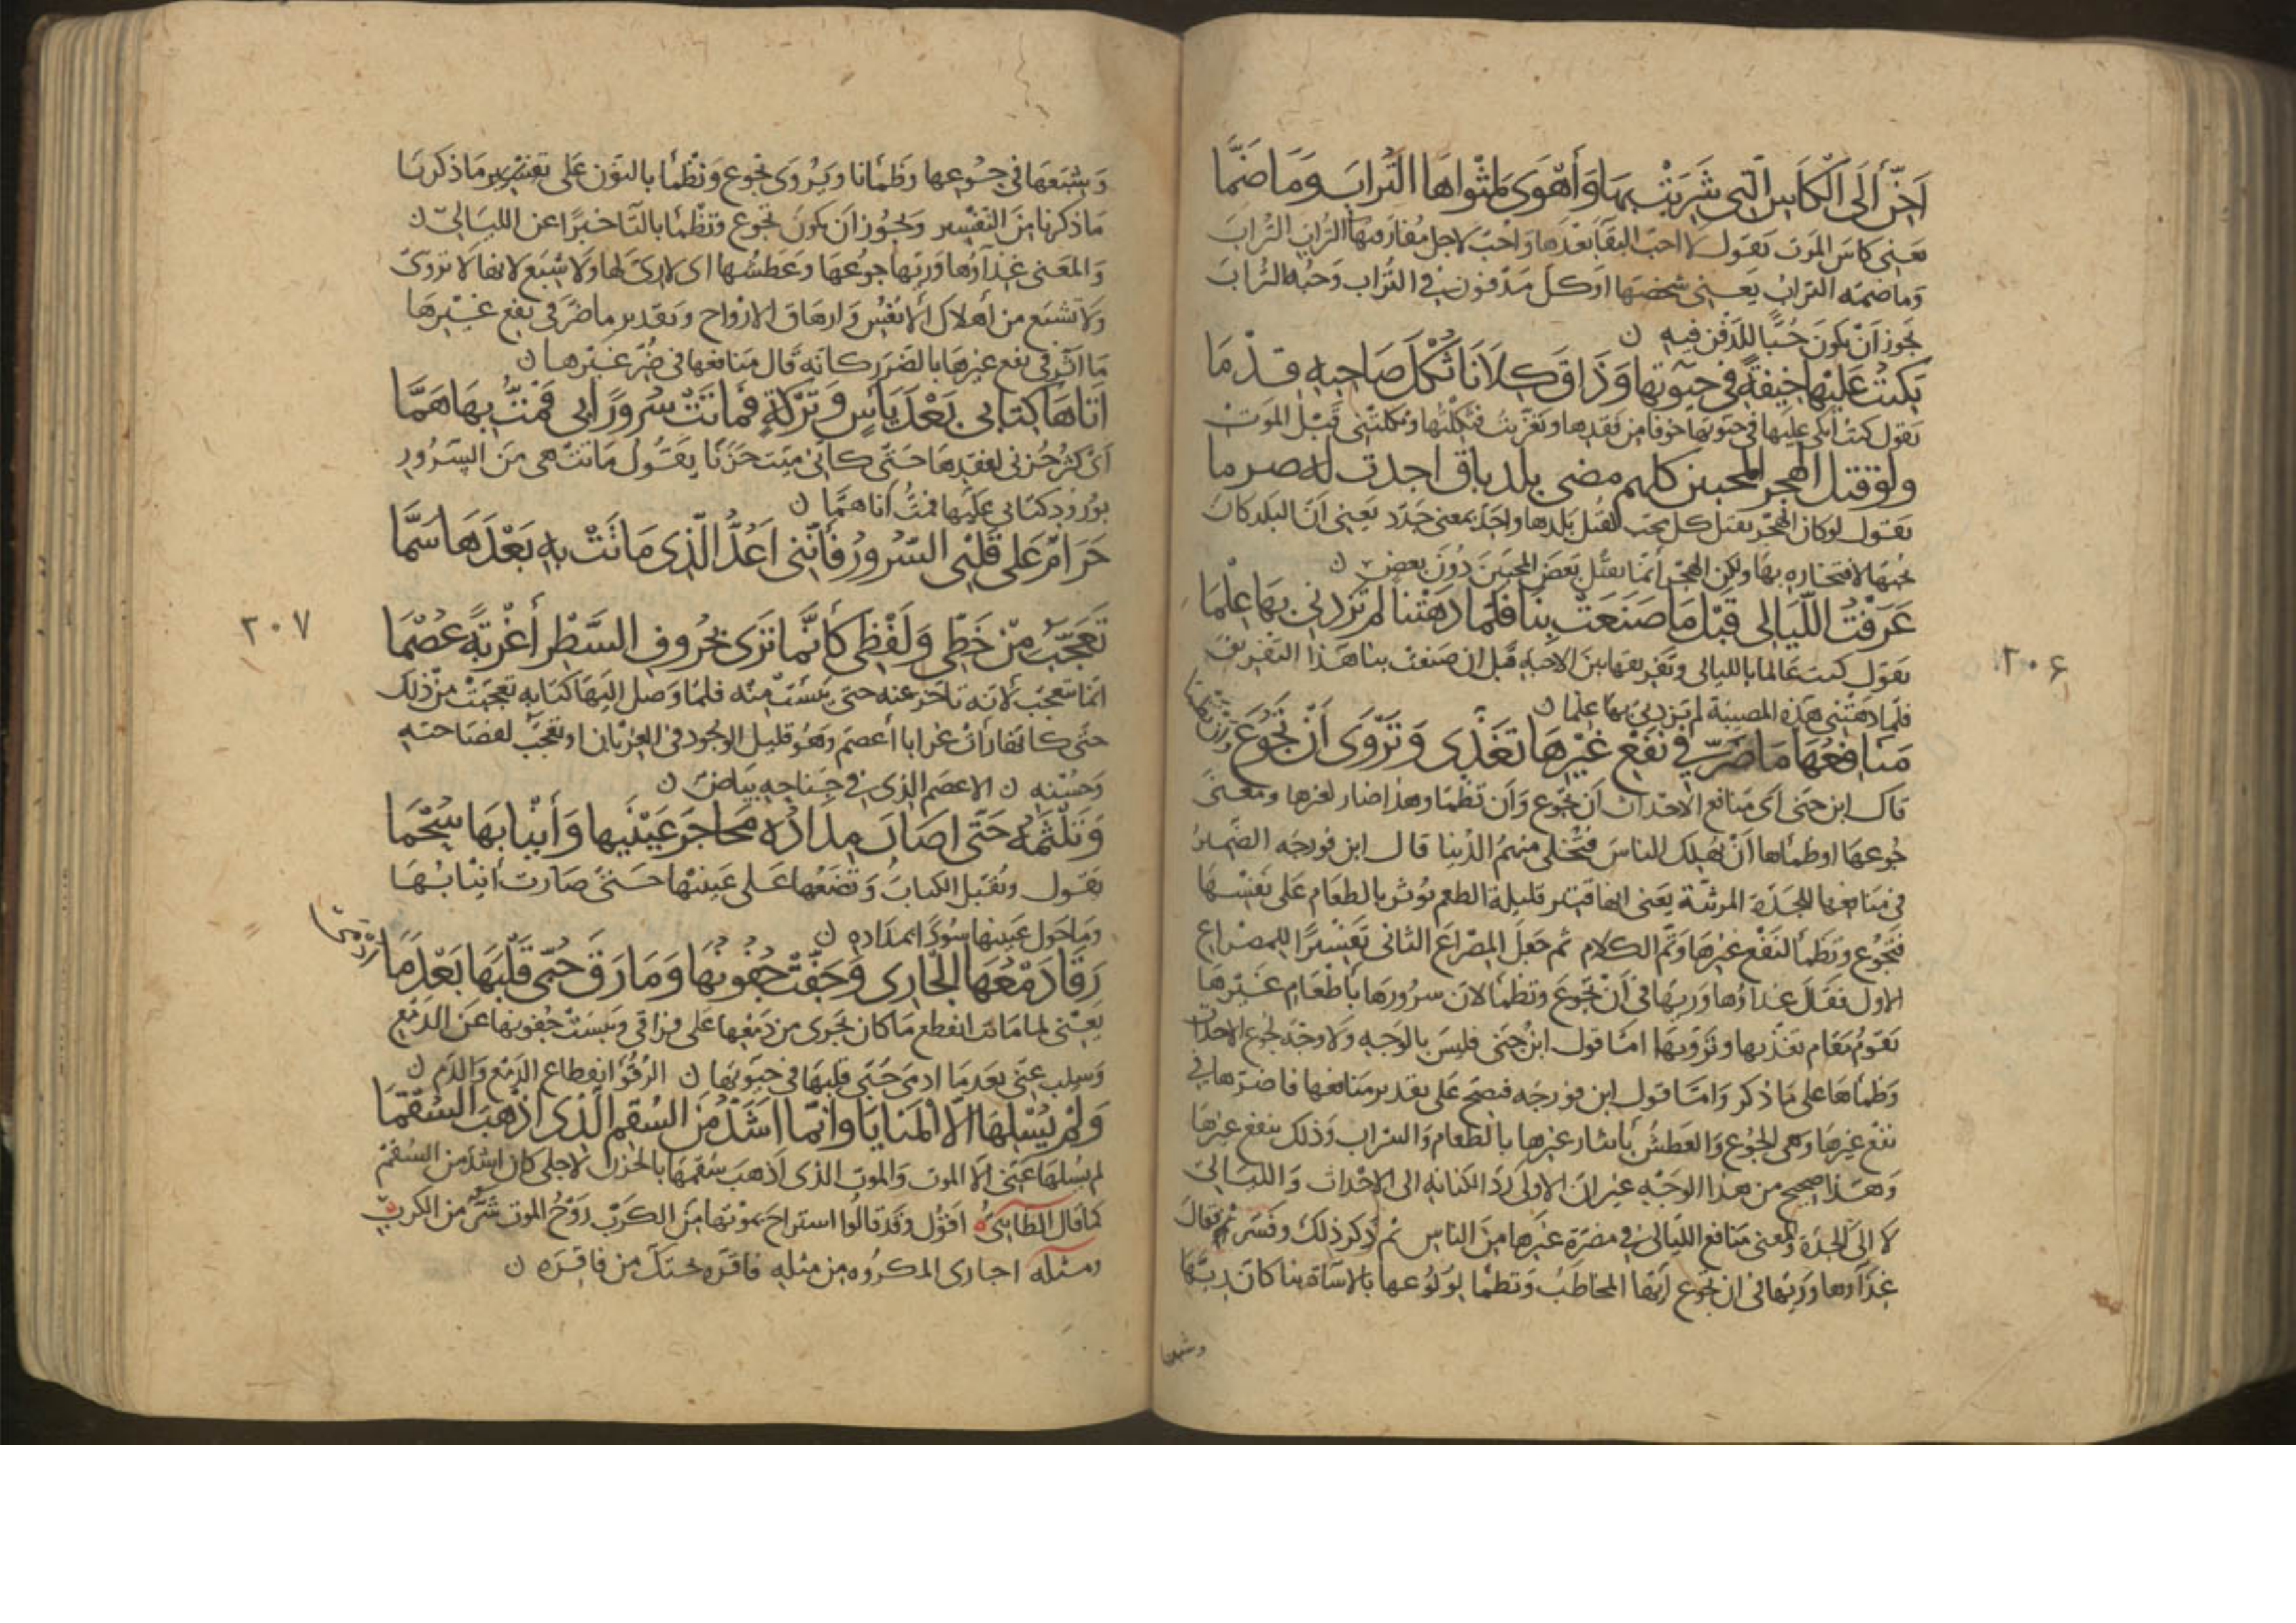 أحنّ إلى الكاس التي شربت بها وأهوى لمثواها التراب وما ضمّا
يعني كاس الموت يقول لا احب البقا بعدها واحب لاجل مقامها التراب التراب
وما ضمه التراب يعني شخصها او كل مدفون في التراب وحبه التراب
يجوز أن يكون حبًّا للدفن فيه ن
بكيت عليها خيفةً في حيوتها وذاق كلانا ثكل صاحبه قدما
يقول كنت ابكي عليها في حيوتها خوفا من فقدها وتغربت فثكلتها وثكلتني قبل الموت
ولو قتل الهجر المحبين كلهم مضى بلد باق اجدت له صرما
يقول لو كان الهجر يقتل كل محب لقتل بلدها واجد بمعنى جدد يعني أن البلد كان
يحبها لافتخاره بها ولكن الهجر أنما يقتل بعض المحبين دون بعض ن
عرفت الليالي قبل ما صنعت بنا فلما دهتنا لم تزدني بها علما
يقول كنت عالما بالليالي وتفريقها بين الاحبة قبل ان صنعت بنا هذا التفريق
فلما دهتني هذه المصيبة لم تزدني بها علما ن
منافعها ما ضرّ في نفع غيرها تغذّى وتروى أن تجوع وأن تظما
قال ابن جني اى منافع الاحداث أن تجوع وأن تظما وهذا ضار لغيرها ومعنى
جوعها او ظمأها أن تهلك الناس فتخلى منهم الدنيا قال ابن فورجه الضمير
في منافعها للجدة المرثية يعنى انها قليلة الطعم توثر بالطعام على نفسها
فتجوع وتظمأ لنفع غيرها وتم الكلام ثم جعل المصراع الثانى تفسيرًا للمصراع
الاول فقال غذاؤها وريها في أن تجوع وتظمأ لان سرورها بأطعام غيرها
يقوم مقام تغذيها وترويها امّا قول ابن جنى فليس بالوجه ولا وجه لجوع الاحداث
وظمأها على ما ذكر وامّا قول ابن فورجه فيصح على تقدير منافعها فاضرّها في
نفع غيرها وهى الجوع والعطش بأيثار غيرها بالطعام والشراب وذلك ينفع غيرها
وهذا صحيح من هذا الوجه غير ان الاولى ردّ الكناية الى الاحداث والليالى
لا الى الجدة والمعنى منافع الليالى في مضرة غيرها من الناس ثم ذكر ذلك وفسر فقال
غذاؤها وريها في ان تجوع أيها المخاطب وتظما لولوعها بالاساة بنا كان ريها
وشبعها
٢٠۶
وشبعها في جوعها وظمأنا ويروى نجوع ونظما بالنون على تفسير ما ذكرنا
ما ذكرنا من التفسير ويجوز ان يكون تجوع وتظما بالتا خبرًا عن الليالي ن
والمعنى غذاؤها وريها جوعها وعطشها اى لا رى لها ولا شبع لانها لا تروى
ولا تشبع من أهلاك الأنفس وارهاق الارواح وتقدير ما ضر في نفع غيرها
ما اثر في نفع غيرها بالضرر كانه قال منافعها في ضر غيرها ن
أتاها كتابى بعد يأسٍ وترحةٍ فماتت سرورًا بي فمتّ بها همّا
اى كثر حزنى لفقدها حتى كانى ميت حزنا يقول ماتت هى من السرور
بورود كتابي عليها فمتّ أنا همّا ن
حرام على قلبي السرور فأنني أعدّ الذي ماتت به بعدها سمّا
٢٠٧
تعجّب من خطّي ولفظي كأنّما ترى بحروف السطر أغربةً عصما
انما تعجب لانه تاخر عنه حتى يئست منه فلما وصل اليها كتابه تعجبت من ذلك
حتى كانها رأت غرابا أعصم وهو قليل الوجود في الغربان او تعجب لفصاحته
وحسنه ن الاعصم الذي في جناحه بياض ن
وتلثمه حتّى اصار مداده محاجر عينيها وأنيابها سحما
يقول وتقبل الكتاب وتضعها على عينيها حتى صارت أنيابها
وما حول عينيها سودًا بمداده ن
رقا دمعها الجاري وجفّت جفونها وما رق حبّى قلبها بعد ما ادمى
يعني لما ماتت انقطع ما كان يجرى من دمعها على فراقى ويبست جفونها عن الدمع
وسلت عني بعد ما ادمى حبّى قلبها في حيوتها ن الرقؤ انقطاع الدمع والدم ن
ولم يسلها الّا المنايا وانّما اشدّ من السقم الذى اذهب السقما
لم يسلها عنى الا الموت والموت الذى أذهب سقمها بالحزن لاجلى كان اشد من السقم
كما قال الطايىّ اقول وقد قالوا استراح بموتها من الكرب روح الموت شرّ من الكرب
ومثله اجارى المكروه من مثله فاقرةٍ نجتك من فاقره ن